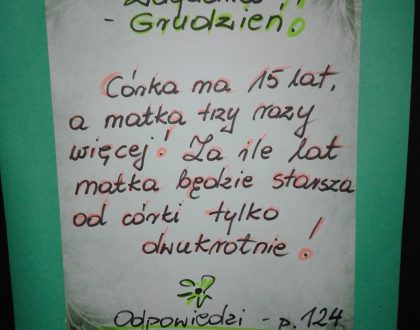 - Grudzień!
Córka ma 15 lat,
a matka trzy razy
więcej! Za ile lat
matka będzie starsza
od córki tylko
dwukrotnie!
Odpowiedzi - p. 124